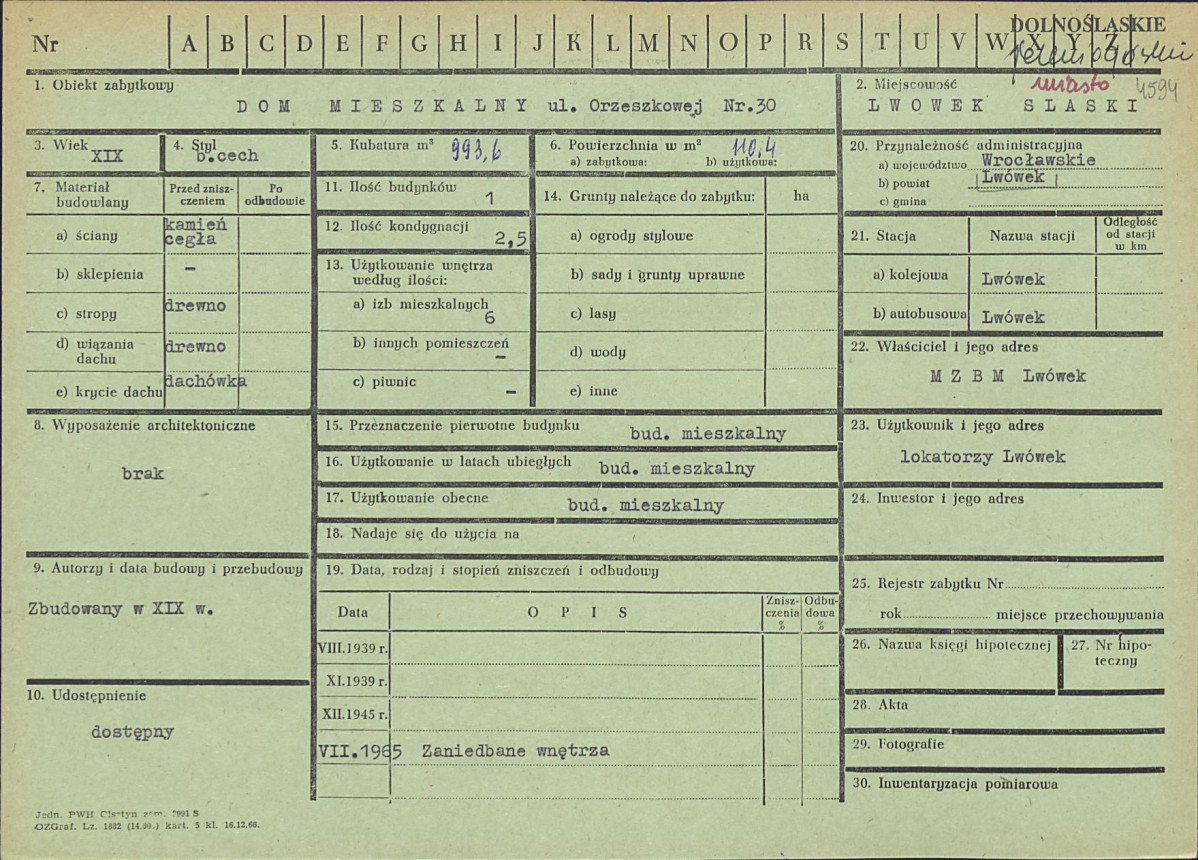 DOLNOŚLĄSKIE
Nr A B C D E F G H I J K L M N O P R S T U V W X Y Z
1. Obiekt zabytkowy
DOM MIESZKALNY ul. Orzeszkowej Nr.30
2. Miejscowość miasto 4594
LWOWEK SLASKI
3. Wiek
XIX
4. Styl
b.cech
5. Kubatura m³ 993,6
6. Powierzchnia w m² 110,4
a) zabytkowa: b) użytkowa:
7. Materiał budowlany
Przed zniszczeniem
Po odbudowie
a) ściany kamień cegła
b) sklepienia –
c) stropy drewno
d) wiązania dachu drewno
e) krycie dachu dachówka
8. Wyposażenie architektoniczne
brak
9. Autorzy i data budowy i przebudowy
Zbudowany w XIX w.
10. Udostępnienie
dostępny
11. Ilość budynków
1
12. Ilość kondygnacji
2,5
13. Użytkowanie wnętrza według ilości:
a) izb mieszkalnych
6
b) innych pomieszczeń
–
c) piwnic –
14. Grunty należące do zabytku: ha
a) ogrody stylowe
b) sady i grunty uprawne
c) lasy
d) wody
e) inne
15. Przeznaczenie pierwotne budynku bud. mieszkalny
16. Użytkowanie w latach ubiegłych bud. mieszkalny
17. Użytkowanie obecne bud. mieszkalny
18. Nadaje się do użycia na
19. Data, rodzaj i stopień zniszczeń i odbudowy
Data OPIS Zniszczenia % Odbudowa %
VIII.1939 r.
XI.1939 r.
XII.1945 r.
VII.1965 Zaniedbane wnętrza
20. Przynależność administracyjna
a) województwo Wrocławskie
b) powiat Lwówek
c) gmina
21. Stacja Nazwa stacji Odległość od stacji w km
a) kolejowa Lwówek
b) autobusowa Lwówek
22. Właściciel i jego adres
M Z B M Lwówek
23. Użytkownik i jego adres
lokatorzy Lwówek
24. Inwestor i jego adres
25. Rejestr zabytku Nr
rok miejsce przechowywania
26. Nazwa księgi hipotecznej
27. Nr hipoteczny
28. Akta
29. Fotografie
30. Inwentaryzacja pomiarowa
Jedn. PWH Olsztyn zam. S
OZGraf. Lz. 1882 kart. 5 kl. 16.12.66.